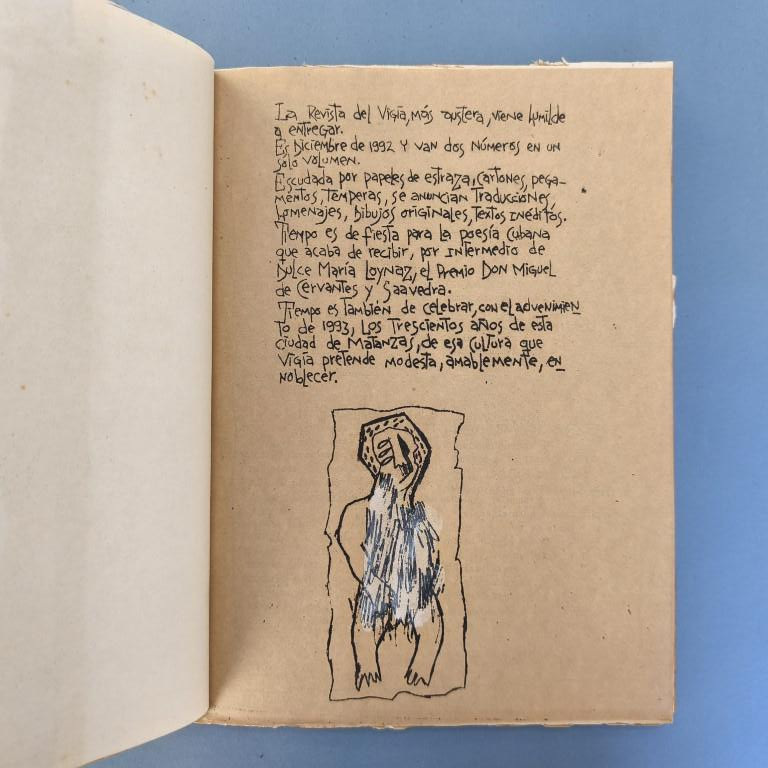 La Revista del Vigía, más austera, viene humilde
a entregar.
Es Diciembre de 1992 y van dos números en un
sólo volumen.
Escudada por papeles de estraza, cartones, pega-
mentos, témperas, se anuncian traducciones,
homenajes, dibujos originales, textos inéditos.
Tiempo es de fiesta para la poesía cubana
que acaba de recibir, por intermedio de
Dulce María Loynaz, el Premio Don Miguel
de Cervantes y Saavedra.
Tiempo es también de celebrar, con el advenimien
to de 1993, los trescientos años de esta
ciudad de Matanzas, de esa cultura que
Vigía pretende modesta, amablemente, en
noblecer.